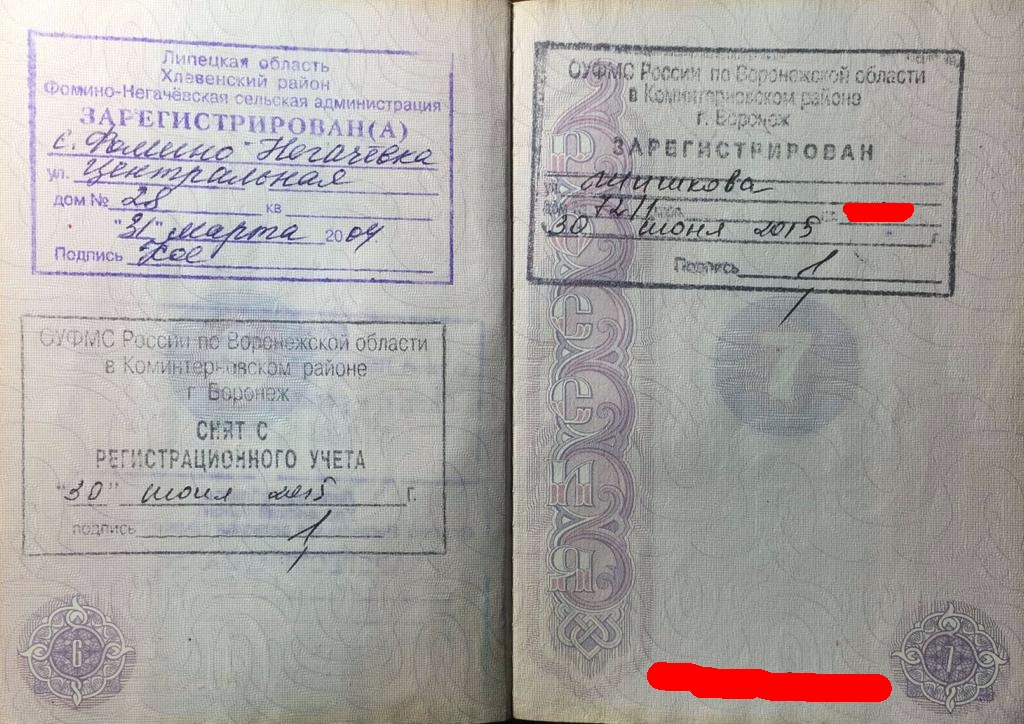 Липецкая область
Хлевенский район
Фомино-Негачёвская сельская администрация
ЗАРЕГИСТРИРОВАН(А)
с. Фомино-Негачёвка
ул. Центральная
дом № 28 кв
"31" марта 2004
Подпись
ОУФМС России по Воронежской области
в Коминтерновском районе
г Воронеж
СНЯТ С
РЕГИСТРАЦИОННОГО УЧЕТА
"30" июня 2015 г.
подпись
6
ОУФМС России по Воронежской области
в Коминтерновском районе
г. Воронеж
ЗАРЕГИСТРИРОВАН
ул. Шишкова
дом
30 июня 2015 г.
Подпись
7
7